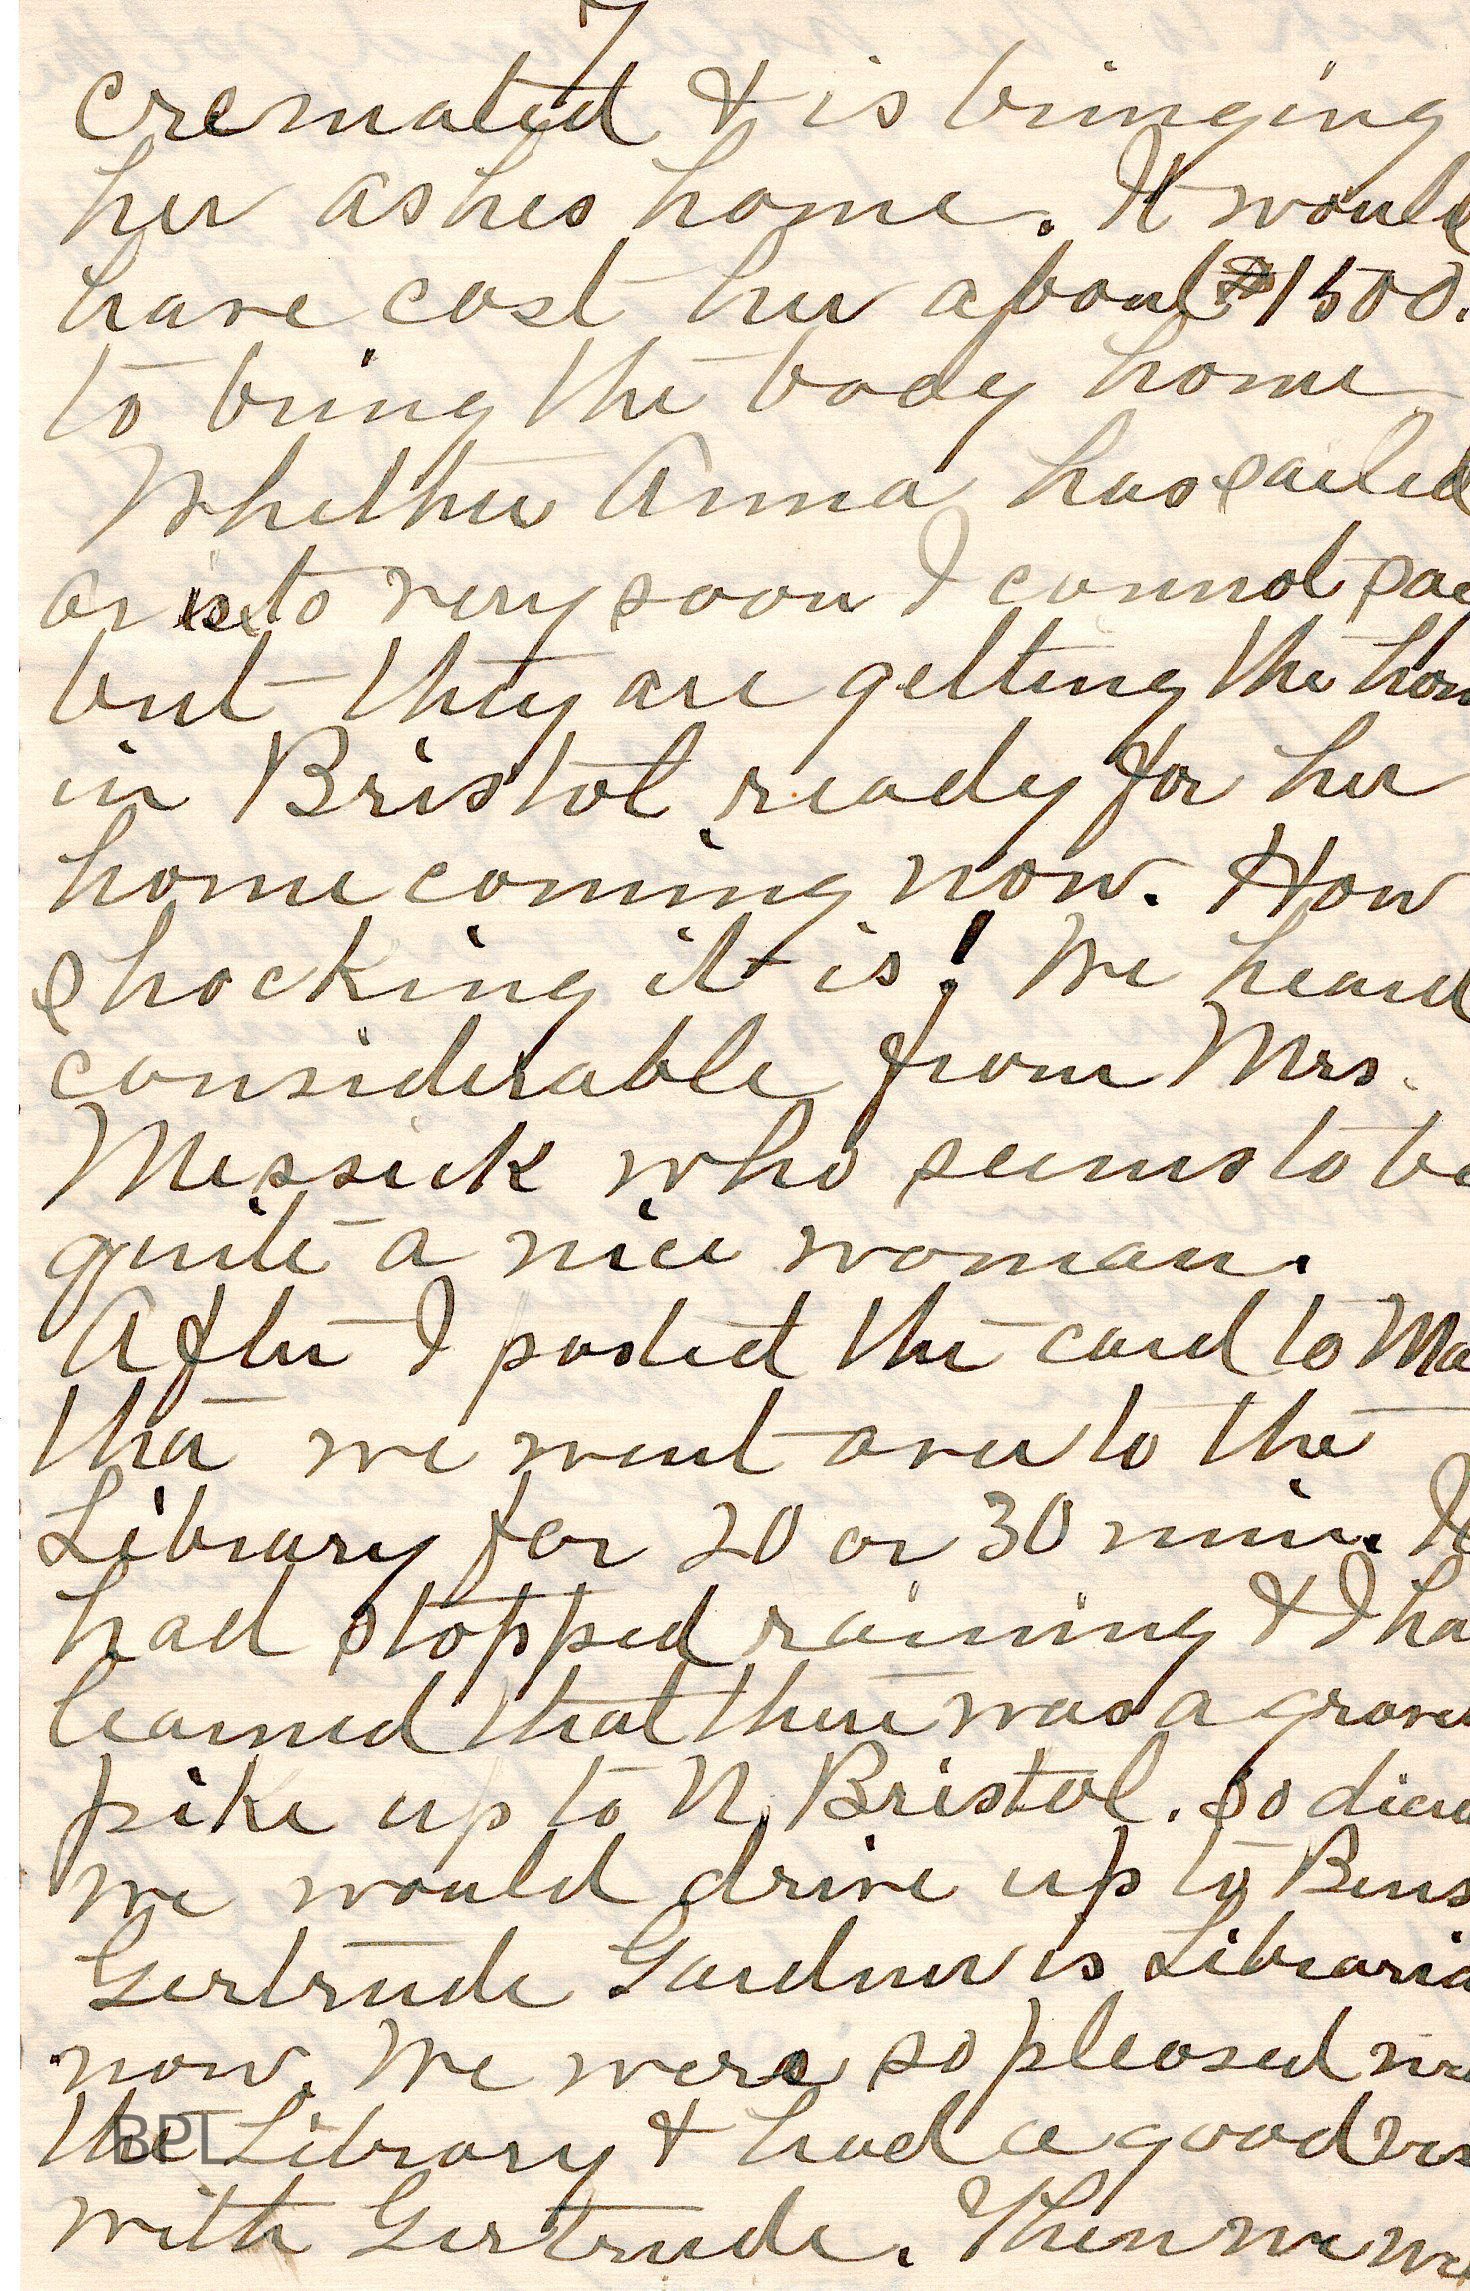 7
cremated & is bringing
her ashes home. It would
have cost her about $1500.
to bring the body home
Whether Anna has sailed
or is to very soon I cannot say
but they are getting the hom
in Bristol ready for her
home coming now. How
shocking it is! We heard
considerable from Mrs.
Messick who seems to be
quite a nice woman.
After I posted the card to Ma
tha we went over to the
Library for 20 or 30 min. It
had stopped raining & I ha
learned that there was a grave
pike up to N. Bristol. so
we would drive up to Bens
Gertrude Gardner is Libraria
now. We were so pleased
the Library & had a good vis
with Gertrude. Then we we
BPL